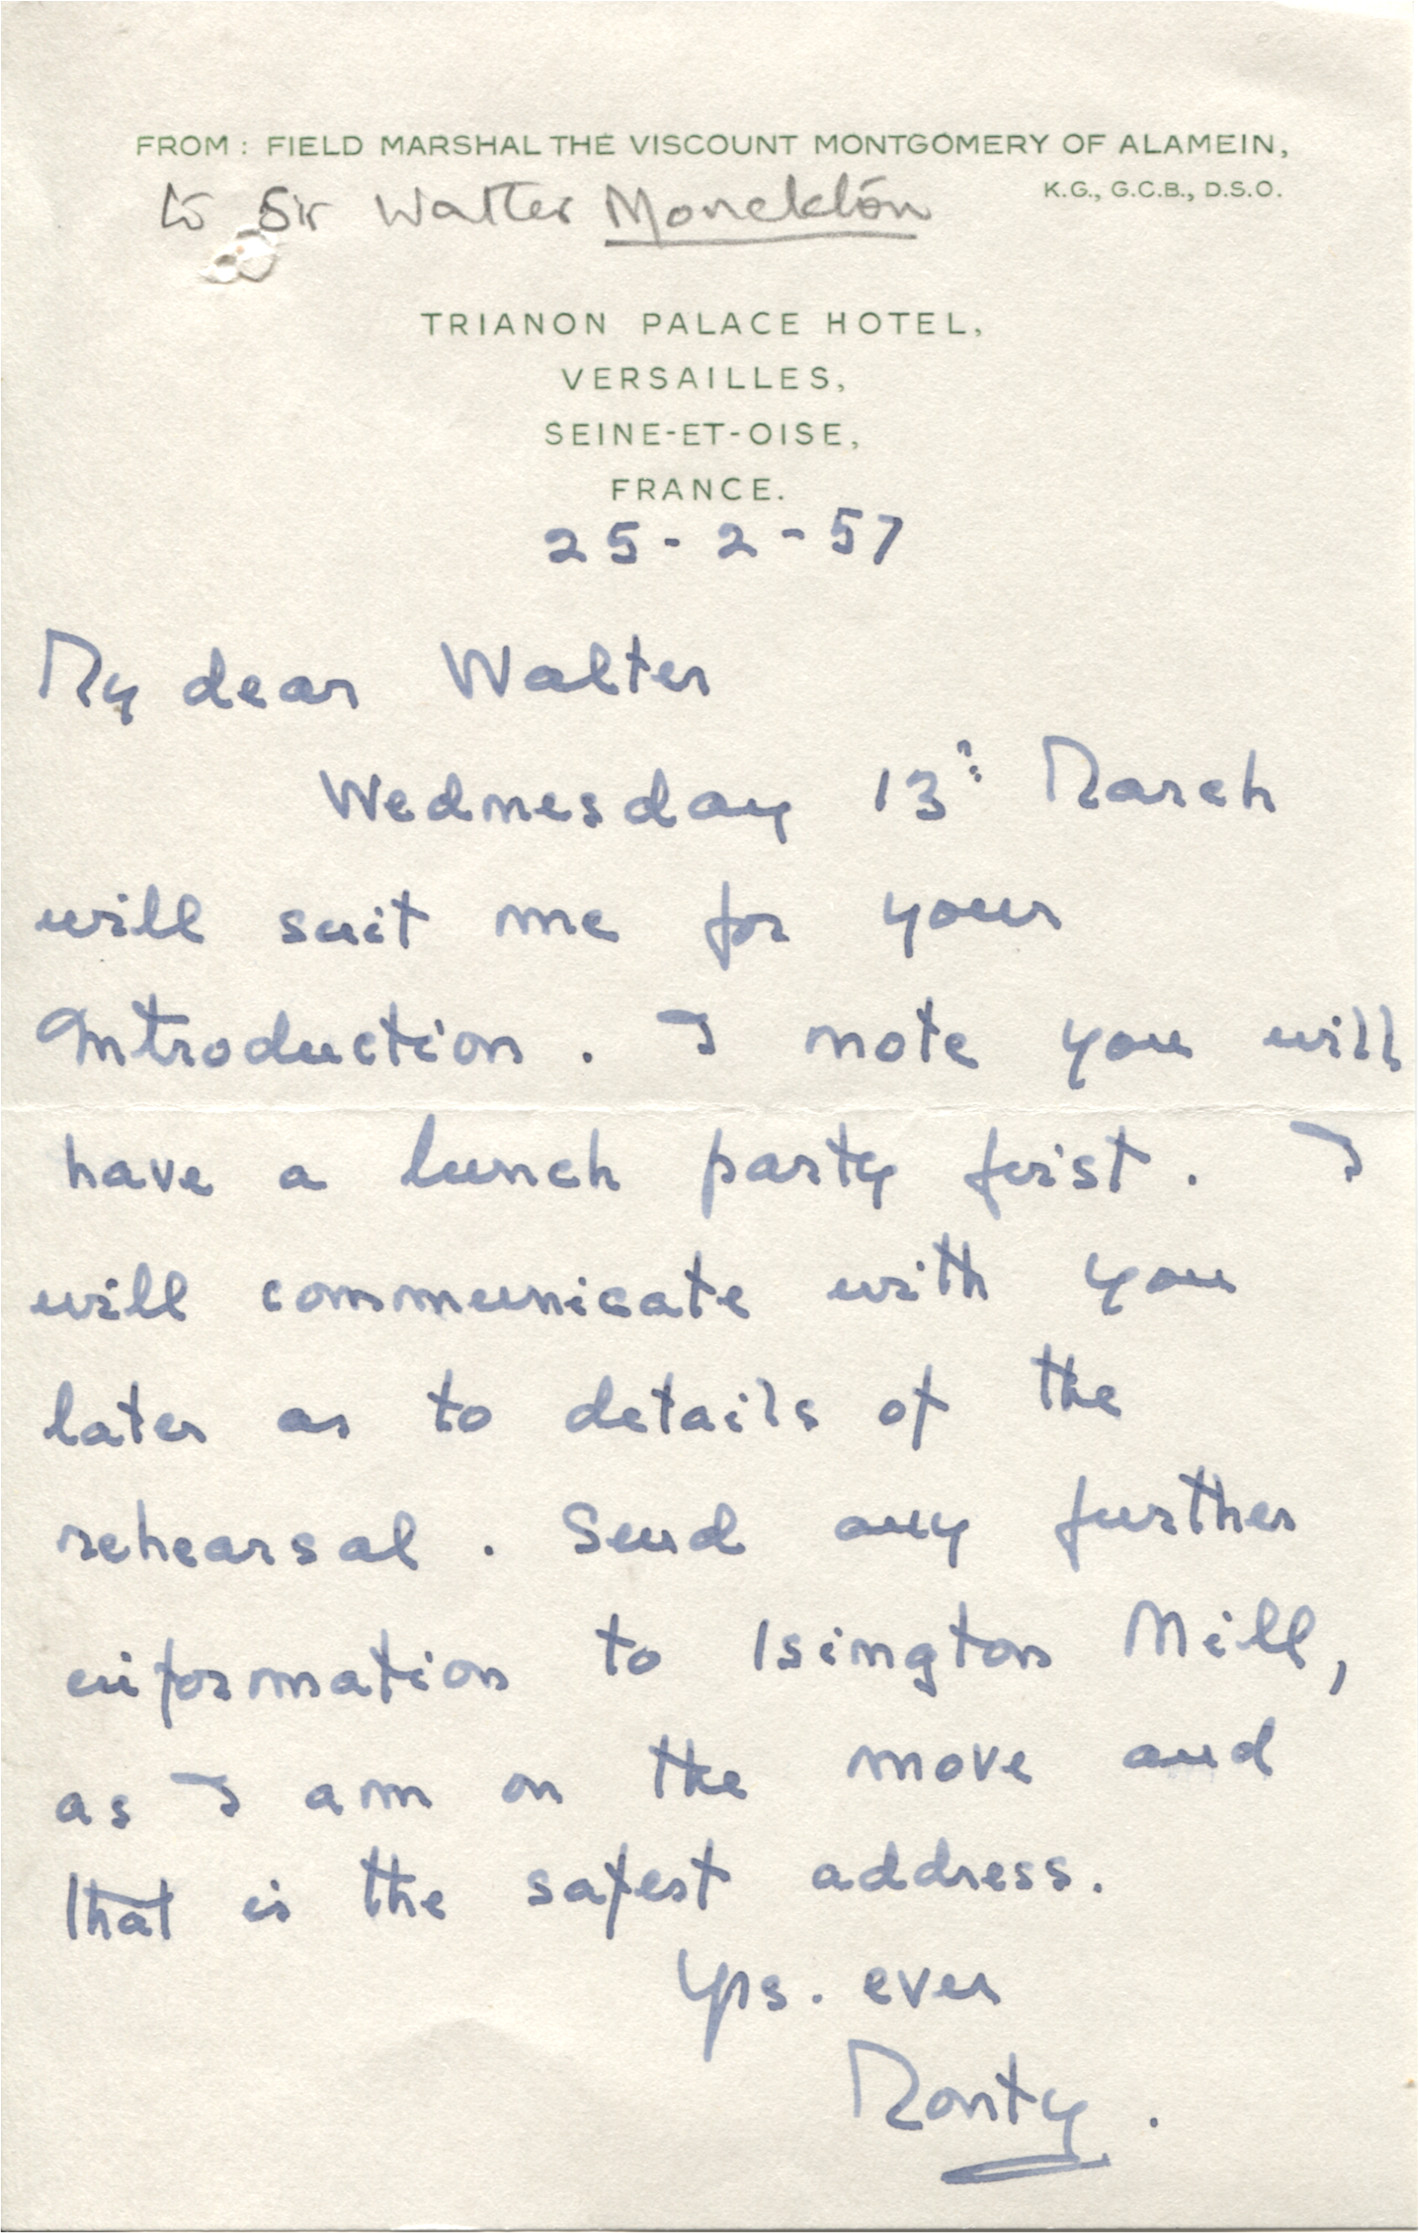 FROM: FIELD MARSHAL THE VISCOUNT MONTGOMERY OF ALAMEIN,
K.G., G.C.B., D.S.O.
to Sir Walter Monckton
TRIANON PALACE HOTEL,
VERSAILLES,
SEINE-ET-OISE,
FRANCE.
25-2-57
My dear Walter
Wednesday 13th March
will suit me for your
Introduction. I note you will
have a lunch party first. I
will communicate with you
later as to details of the
rehearsal. Send any further
information to Isington Mill,
as I am on the move and
that is the safest address.
Yrs. ever
Monty.